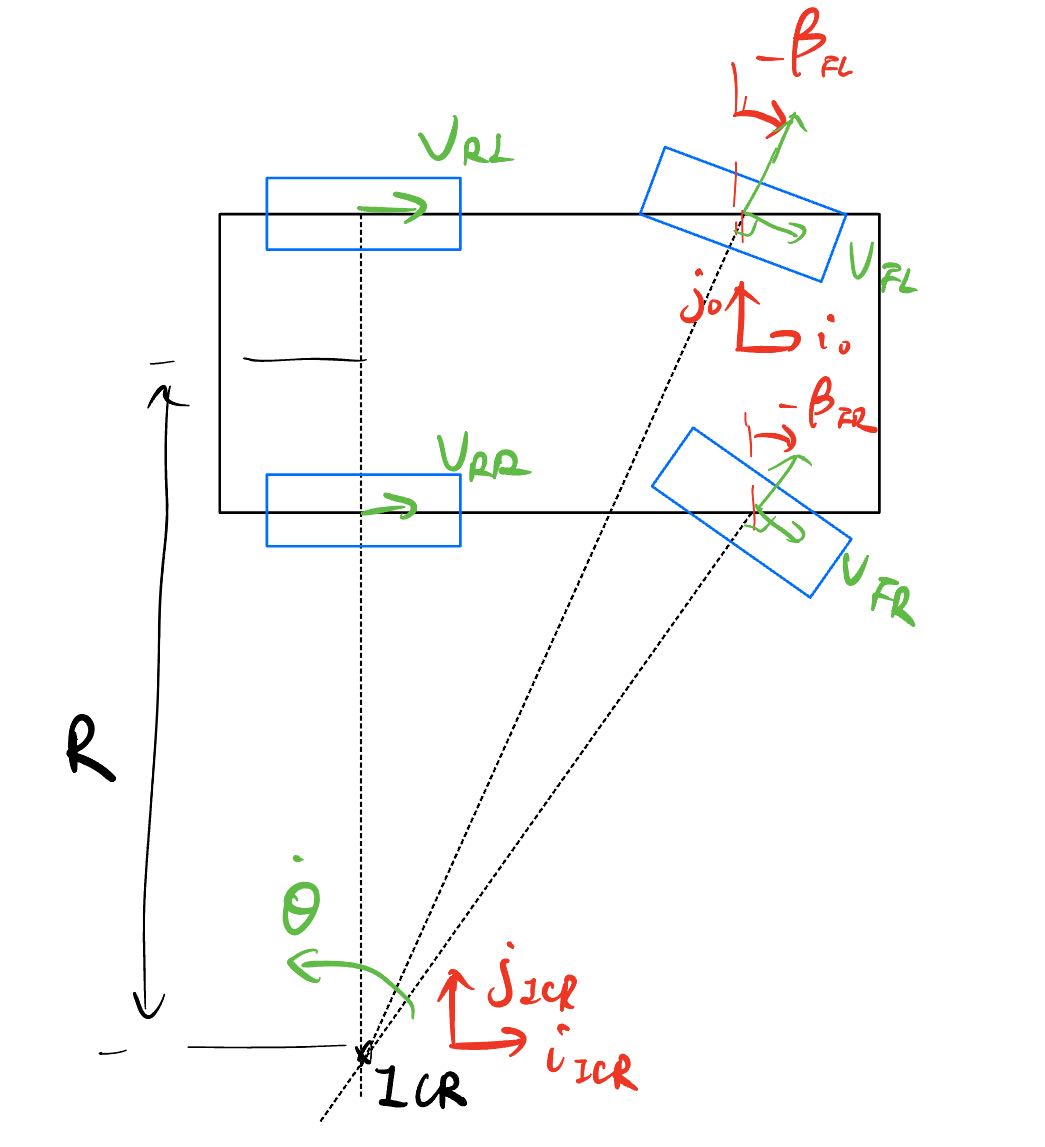 -β_FL
V_RL
V_FL
j_0
i_0
-β_FR
V_RR
V_FR
R
θ̇
j_ICR
i_ICR
ICR